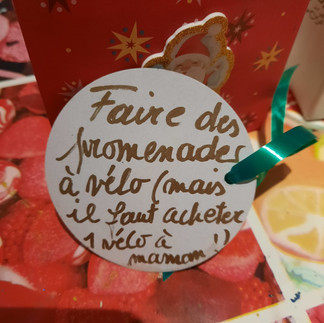 Faire des
promenades
à vélo (mais
il faut acheter
1 vélo à
maman !)